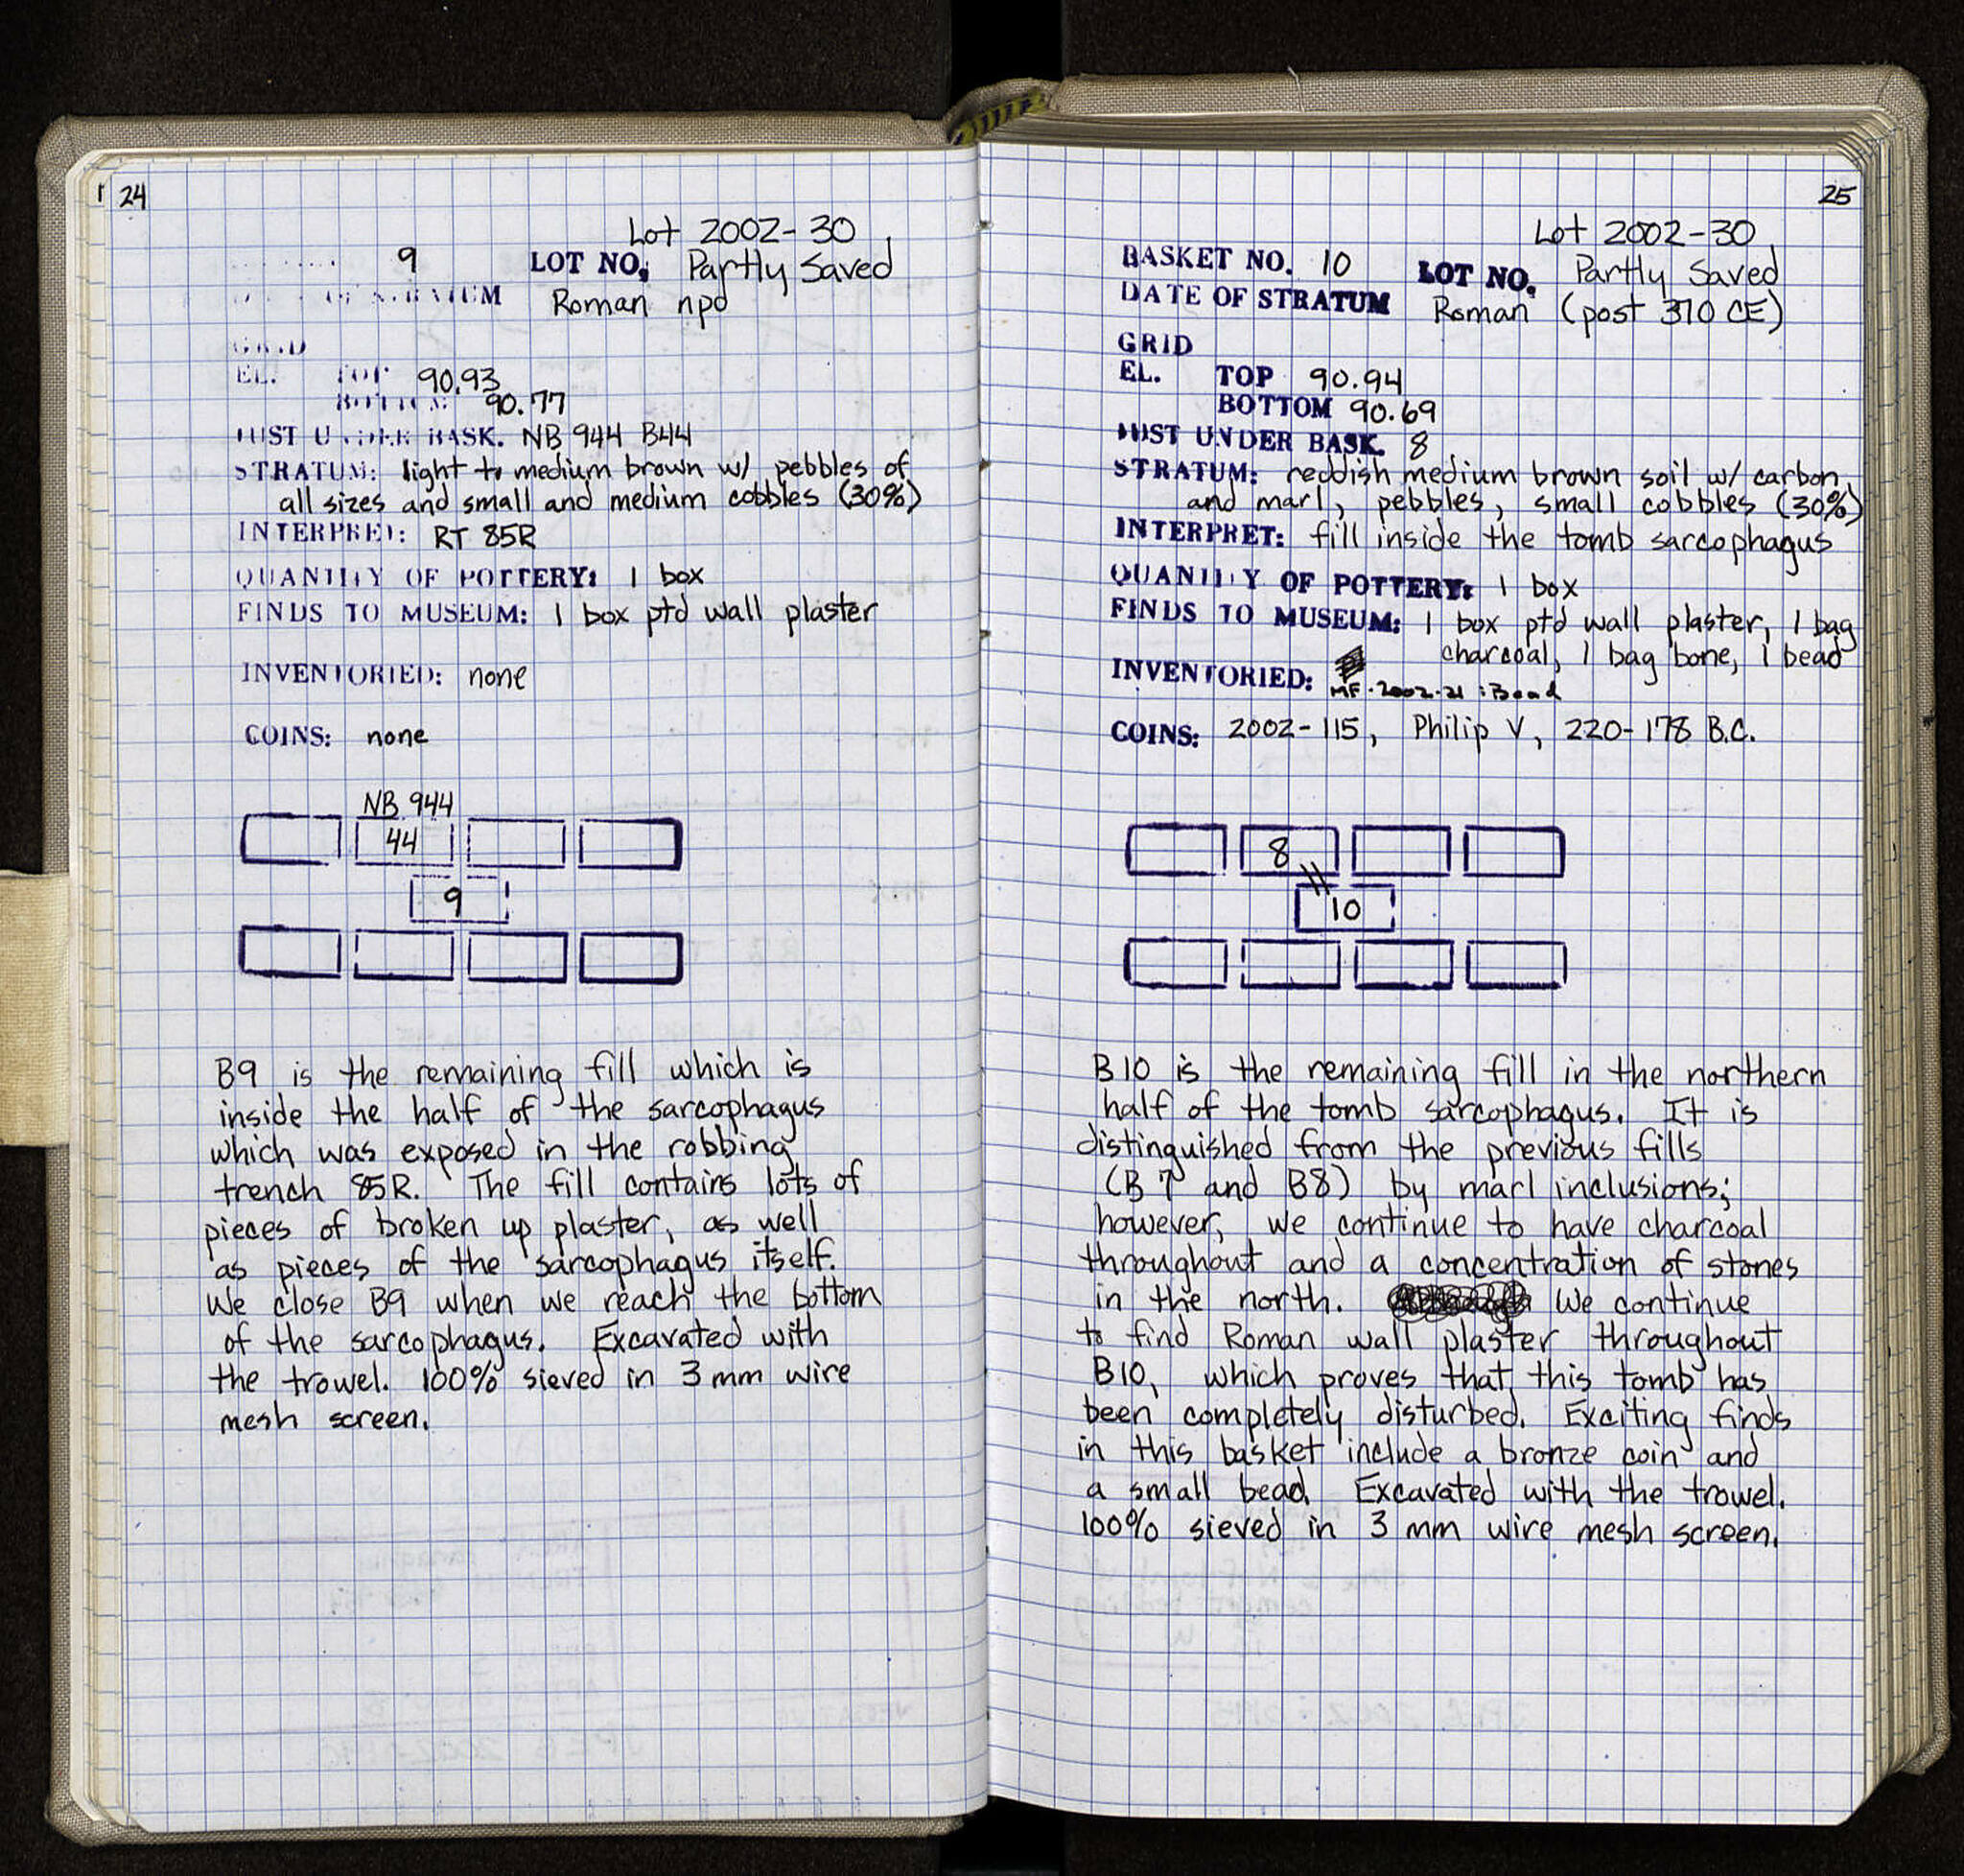 24
Lot 2002-30
9 LOT NO. Partly Saved
STRATUM Roman npd
GRID
EL. TOP 90.93
BOTTOM 90.77
JUST UNDER BASK. NB 944 B44
STRATUM: light to medium brown w/ pebbles of
all sizes and small and medium cobbles (30%)
INTERPRET: RT 85R
QUANTITY OF POTTERY: 1 box
FINDS TO MUSEUM: 1 box ptd wall plaster
INVENTORIED: none
COINS: none
NB 944
44
9
B9 is the remaining fill which is
inside the half of the sarcophagus
which was exposed in the robbing
trench 85R. The fill contains lots of
pieces of broken up plaster, as well
as pieces of the sarcophagus itself.
We close B9 when we reach the bottom
of the sarcophagus. Excavated with
the trowel. 100% sieved in 3 mm wire
mesh screen.
25
Lot 2002-30
BASKET NO. 10 LOT NO. Partly Saved
DATE OF STRATUM Roman (post 370 CE)
GRID
EL. TOP 90.94
BOTTOM 90.69
JUST UNDER BASK. 8
STRATUM: reddish medium brown soil w/ carbon
and marl, pebbles, small cobbles (30%)
INTERPRET: fill inside the tomb sarcophagus
QUANTITY OF POTTERY: 1 box
FINDS TO MUSEUM: 1 box ptd wall plaster, 1 bag
charcoal, 1 bag bone, 1 bead
INVENTORIED: MF-2002-21 : Bead
COINS: 2002-115, Philip V, 220-178 B.C.
8
10
B10 is the remaining fill in the northern
half of the tomb sarcophagus. It is
distinguished from the previous fills
(B7 and B8) by marl inclusions;
however, we continue to have charcoal
throughout and a concentration of stones
in the north. We continue
to find Roman wall plaster throughout
B10, which proves that this tomb has
been completely disturbed. Exciting finds
in this basket include a bronze coin and
a small bead. Excavated with the trowel.
100% sieved in 3 mm wire mesh screen.